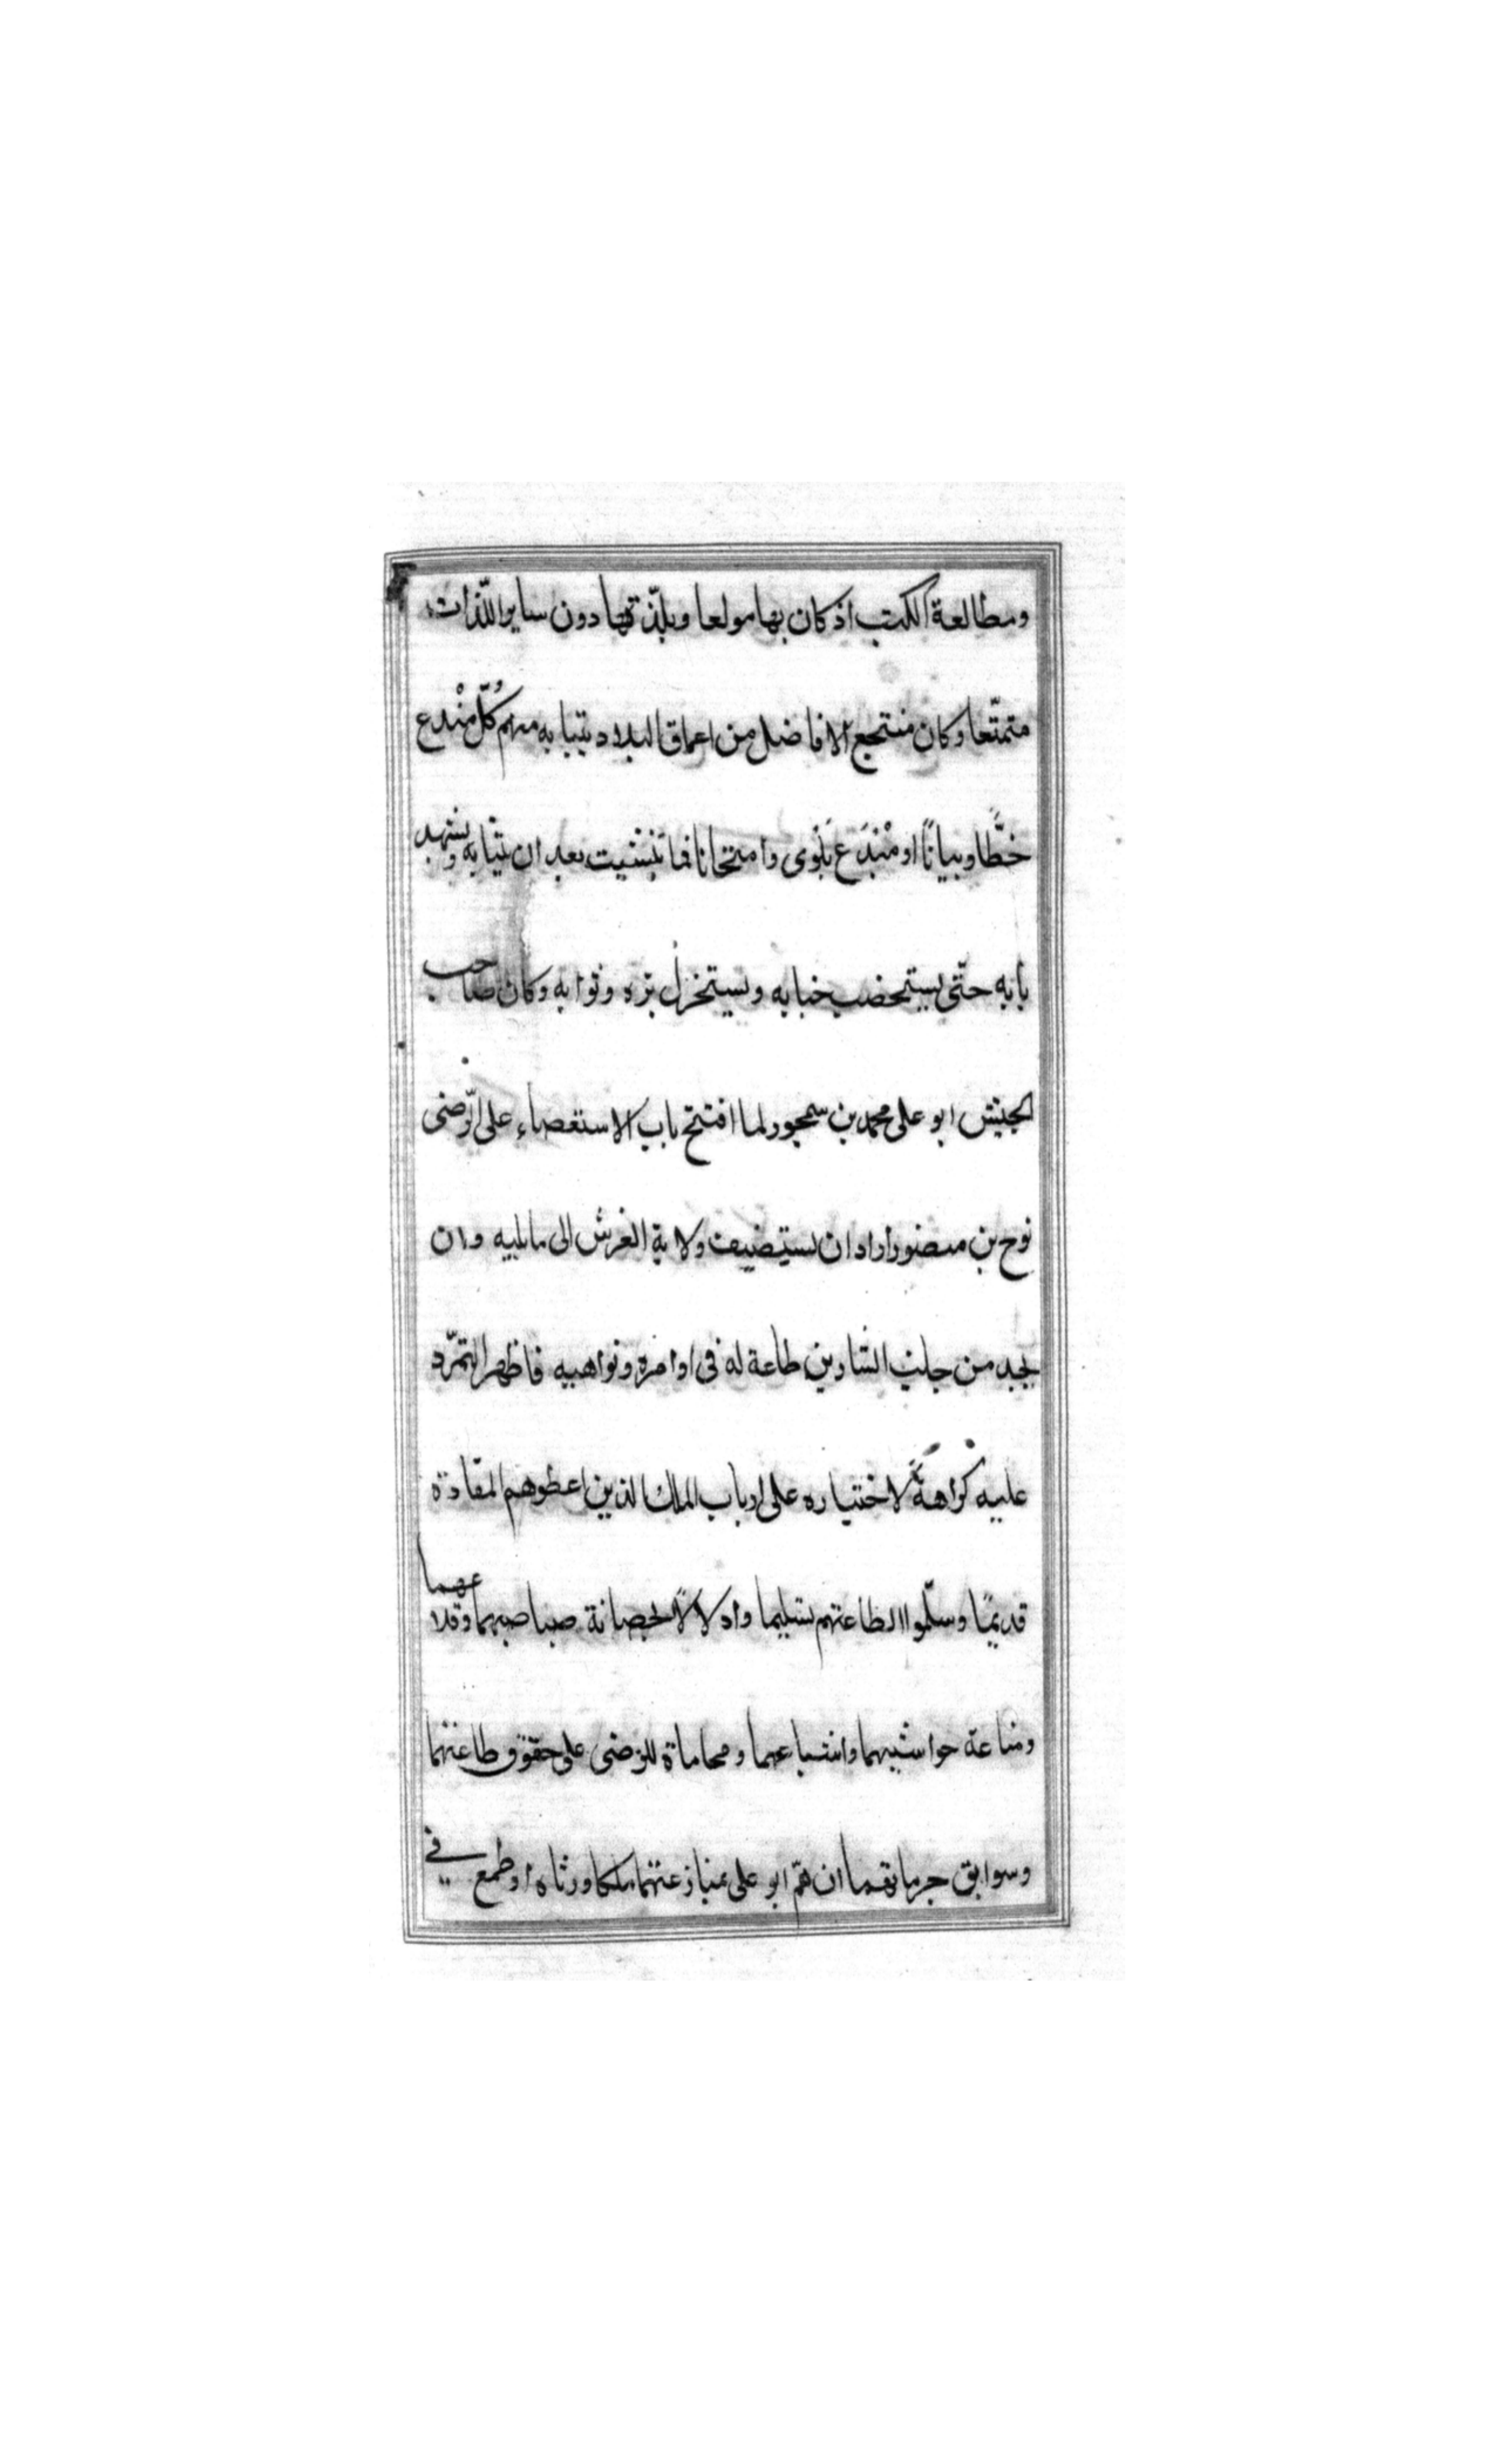 ومطالعة الكتب اذ كان بها مولعا وبلذتها دون ساير اللذات
متمتّعا وكان منتجع الافاضل من اعماق البلاد ينتابه منهم كُلّ مبْدع
خطًّا وبيانًا او مبْدَع بَلْوى وامتحانا فما يتشبث بعد ان ينتابه ويشهد
بابه حتّى يستمحض جنابه ويستجزل برّه وثوابه وكان صاحب
الجيش ابو على محمد بن سمجور لما افتتح باب الاستعصاء على الرّضى
نوح بن منصور اراد ان يستضيف ولاية الغرش الى ما يليه وان
يجد من جانب الشارين طاعة له فى اوامره ونواهيه فاظهر التمرّد
عليه كراهةً لاختياره على ارباب الملك الذين اعطوهم المقادة
قديمًا وسلّموا الطاعتهم تسليما وادلالاً لحصانة صياصيهما وقلاعهما
ومناعة حواشيهما واشياعهما ومحاماة للرضى على حقوق طاعتهما
وسوابق حرماتهما ان همّ ابو على بمنازعتهما ملكا ورثاه او طمع فى